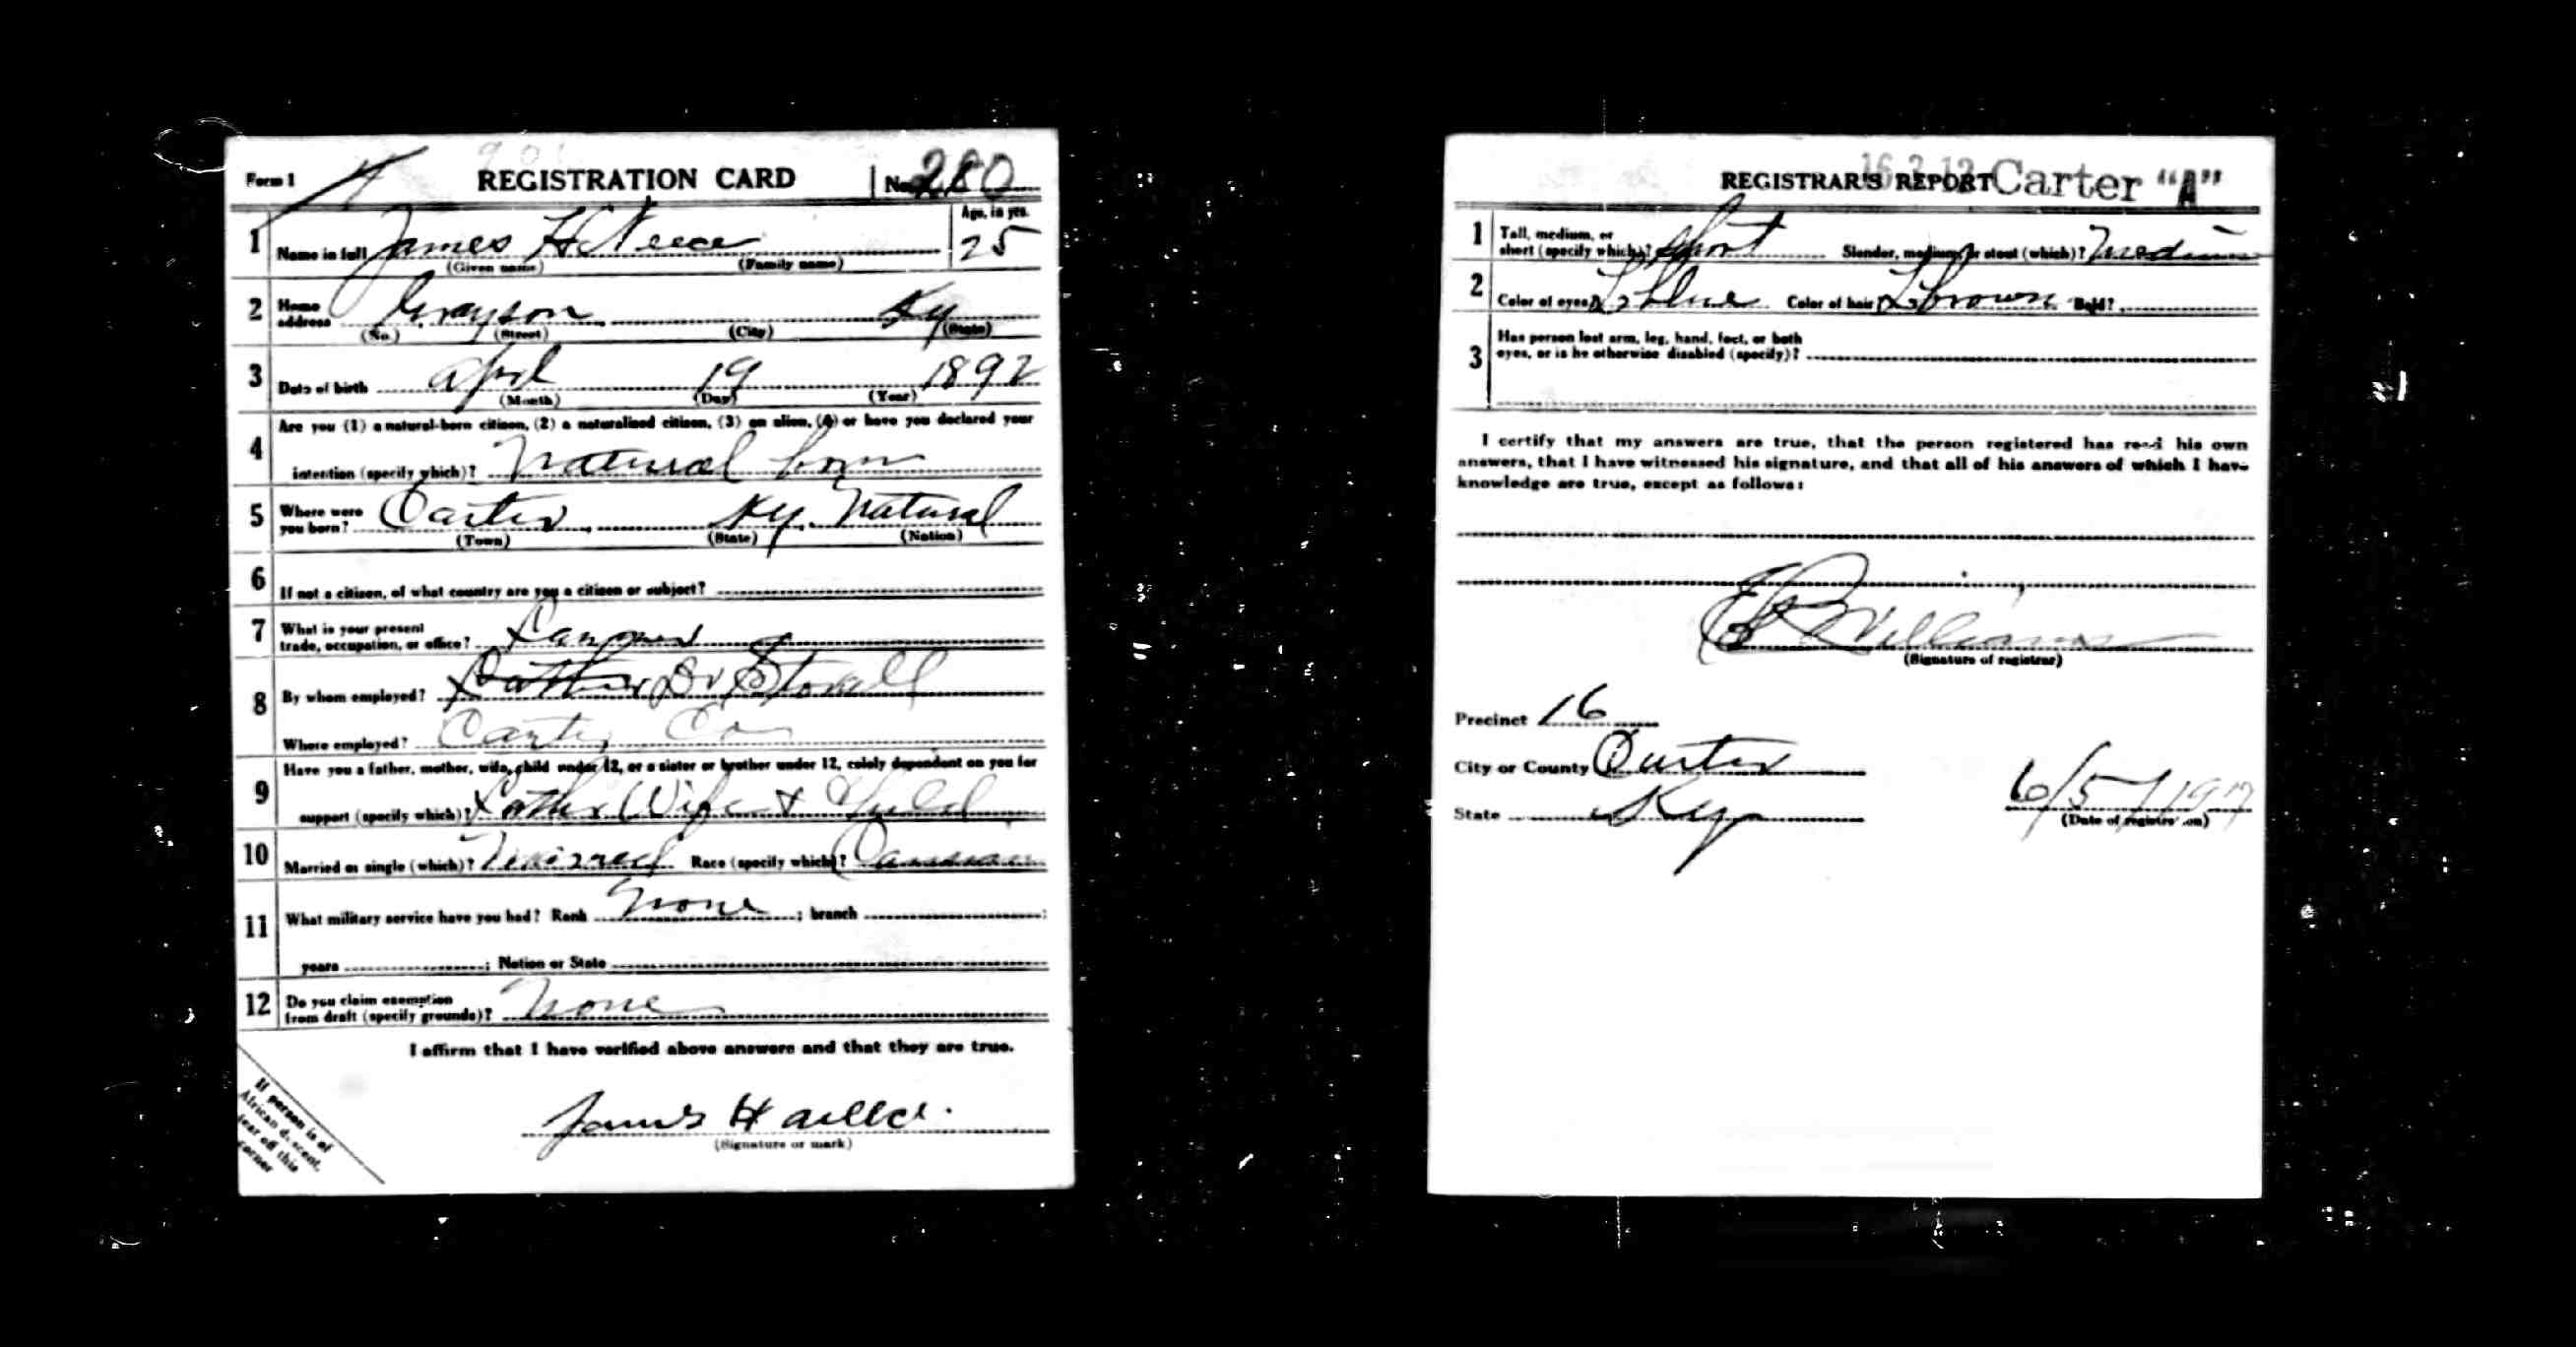 Form 1 REGISTRATION CARD No. 280
1 Name in full James H Neece Age, in yrs. 25
(Given name) (Family name)
2 Home address Grayson Ky
(No.) (Street) (City) (State)
3 Date of birth April 19 1892
(Month) (Day) (Year)
Are you (1) a natural-born citizen, (2) a naturalized citizen, (3) an alien, (4) or have you declared your
4 intention (specify which)? Natural born
5 Where were you born? Carter Ky. Natural
(Town) (State) (Nation)
6 If not a citizen, of what country are you a citizen or subject?
7 What is your present trade, occupation, or office? Farmer
8 By whom employed?
Where employed? Carter Co
Have you a father, mother, wife, child under 12, or a sister or brother under 12, solely dependent on you for
9 support (specify which)? Wife + Child
10 Married or single (which)? Married Race (specify which)?
11 What military service have you had? Rank None ; branch ;
years ; Nation or State
12 Do you claim exemption from draft (specify grounds)? None
I affirm that I have verified above answers and that they are true.
James H
(Signature or mark)
If person is of
African descent,
tear off this
corner
REGISTRAR'S REPORT Carter "A"
1 Tall, medium, or short (specify which)? Short Slender, medium, or stout (which)? Medium
2 Color of eyes L blue Color of hair L brown Bald?
3 Has person lost arm, leg, hand, foot, or both
eyes, or is he otherwise disabled (specify)?
I certify that my answers are true, that the person registered has read his own
answers, that I have witnessed his signature, and that all of his answers of which I have
knowledge are true, except as follows:
Williams
(Signature of registrar)
Precinct 16
City or County Carter
State Ky
6/5/1917
(Date of registration)